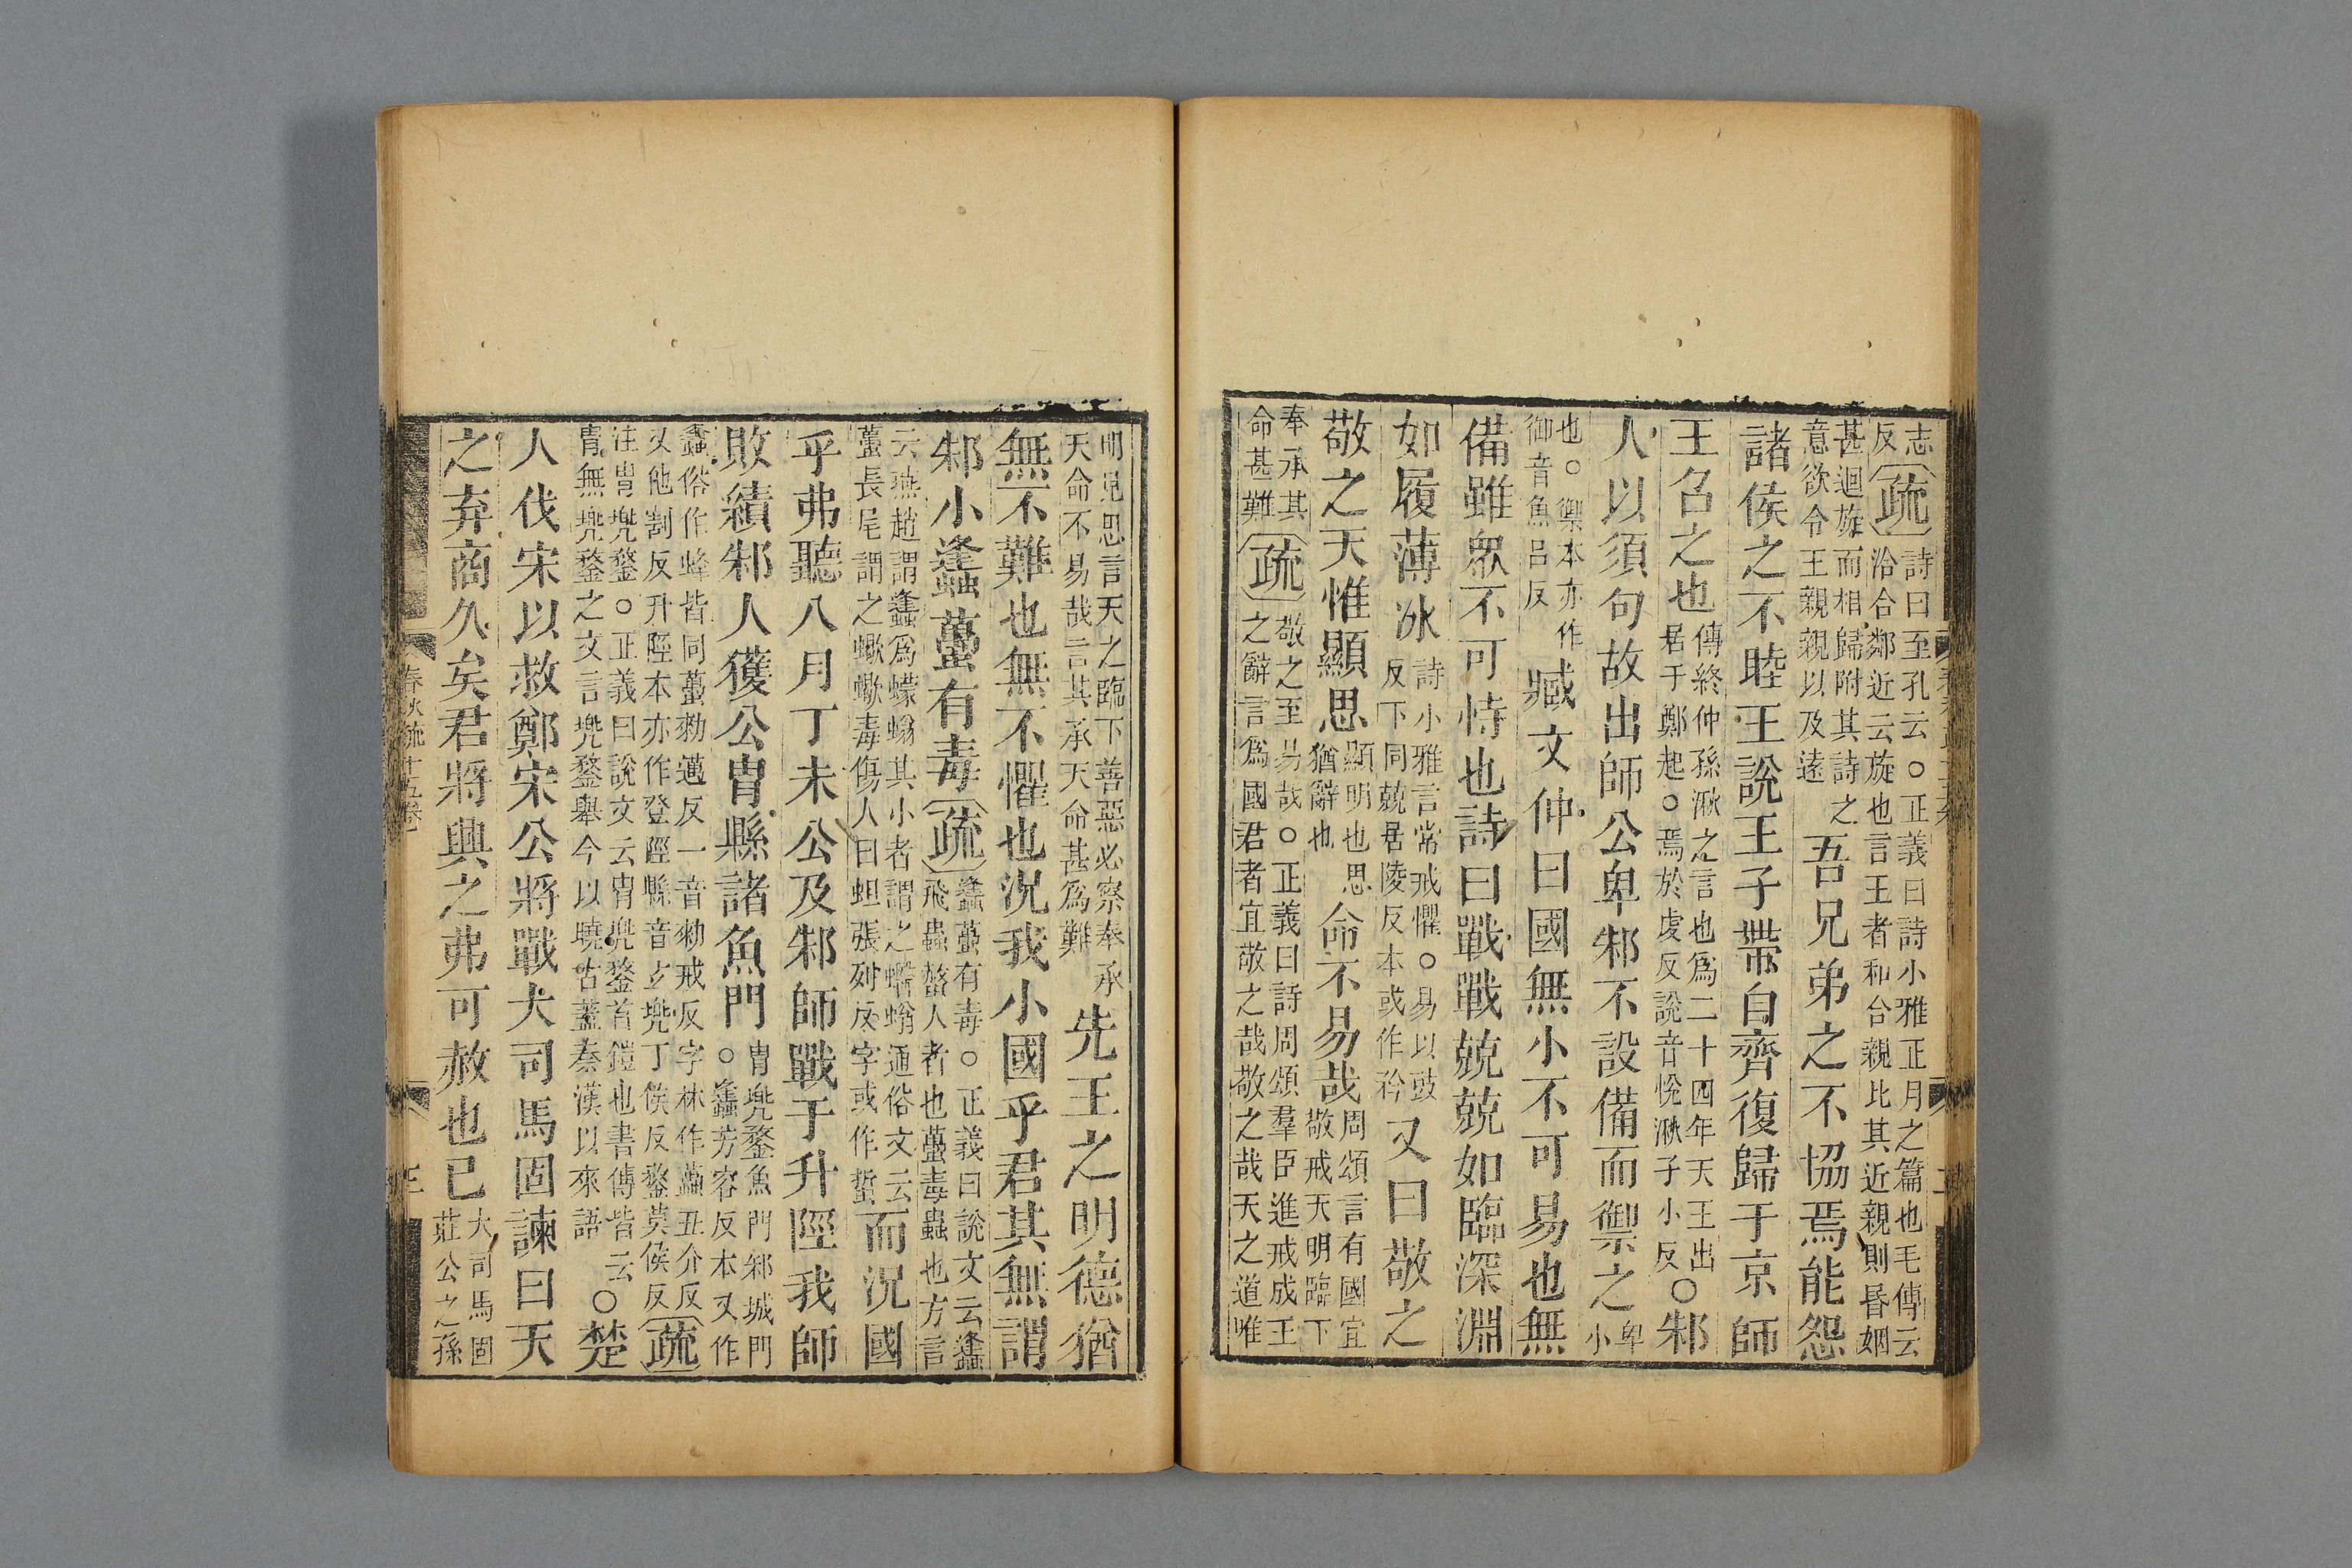 志反疏詩曰至孔云○正義曰詩小雅正月之篇也毛傳云洽合鄰近云旋也言王者和合親比其近親則昬姻
甚迴旋而相歸附其詩之意欲令王親親以及遠吾兄弟之不協焉能怨
諸侯之不睦王說王子帶自齊復歸于京師
王召之也傳終仲孫湫之言也爲二十四年天王出居于鄭起○焉於虔反說音悅湫子小反○邾
人以須句故出師公卑邾不設備而禦之卑小
也○禦本亦作御音魚呂反臧文仲曰國無小不可易也無
備雖衆不可恃也詩曰戰戰兢兢如臨深淵
如履薄冰詩小雅言常戒懼○易以豉反下同兢居陵反本或作矜又曰敬之
敬之天惟顯思顯明也思猶辭也命不易哉周頌言有國宜敬戒天明臨下
奉承其命甚難疏敬之至易哉○正義曰詩周頌羣臣進戒成王之辭言爲國君者宜敬之哉敬之哉天之道唯
明見思言天之臨下善惡必察奉承天命不易哉言其承天命甚爲難先王之明德猶
無不難也無不懼也況我小國乎君其無謂
邾小蠭蠆有毒疏蠭蠆有毒○正義曰說文云蠭飛蟲螫人者也蠆毒蟲也方言
云燕趙謂蠭爲蠓螉其小者謂之蠮螉通俗文云蠆長尾謂之蠍蠍毒傷人曰蛆張列反字或作蜇而況國
乎弗聽八月丁未公及邾師戰于升陘我師
敗績邾人獲公胄縣諸魚門胄兠鍪魚門邾城門○蠭芳容反本又作
蠭俗作蜂皆同蠆勑邁反一音勑戒反字林作蠆丑介反又他割反升陘本亦作登陘縣音玄兠丁侯反鍪莫侯反疏
注胄兠鍪○正義曰說文云胄兠鍪首鎧也書傳皆云胄無兠鍪之文言兠鍪舉今以曉古蓋秦漢以來語○楚
人伐宋以救鄭宋公將戰大司馬固諫曰天
之弃商久矣君將興之弗可赦也已大司馬固莊公之孫
春秋疏十五卷
三